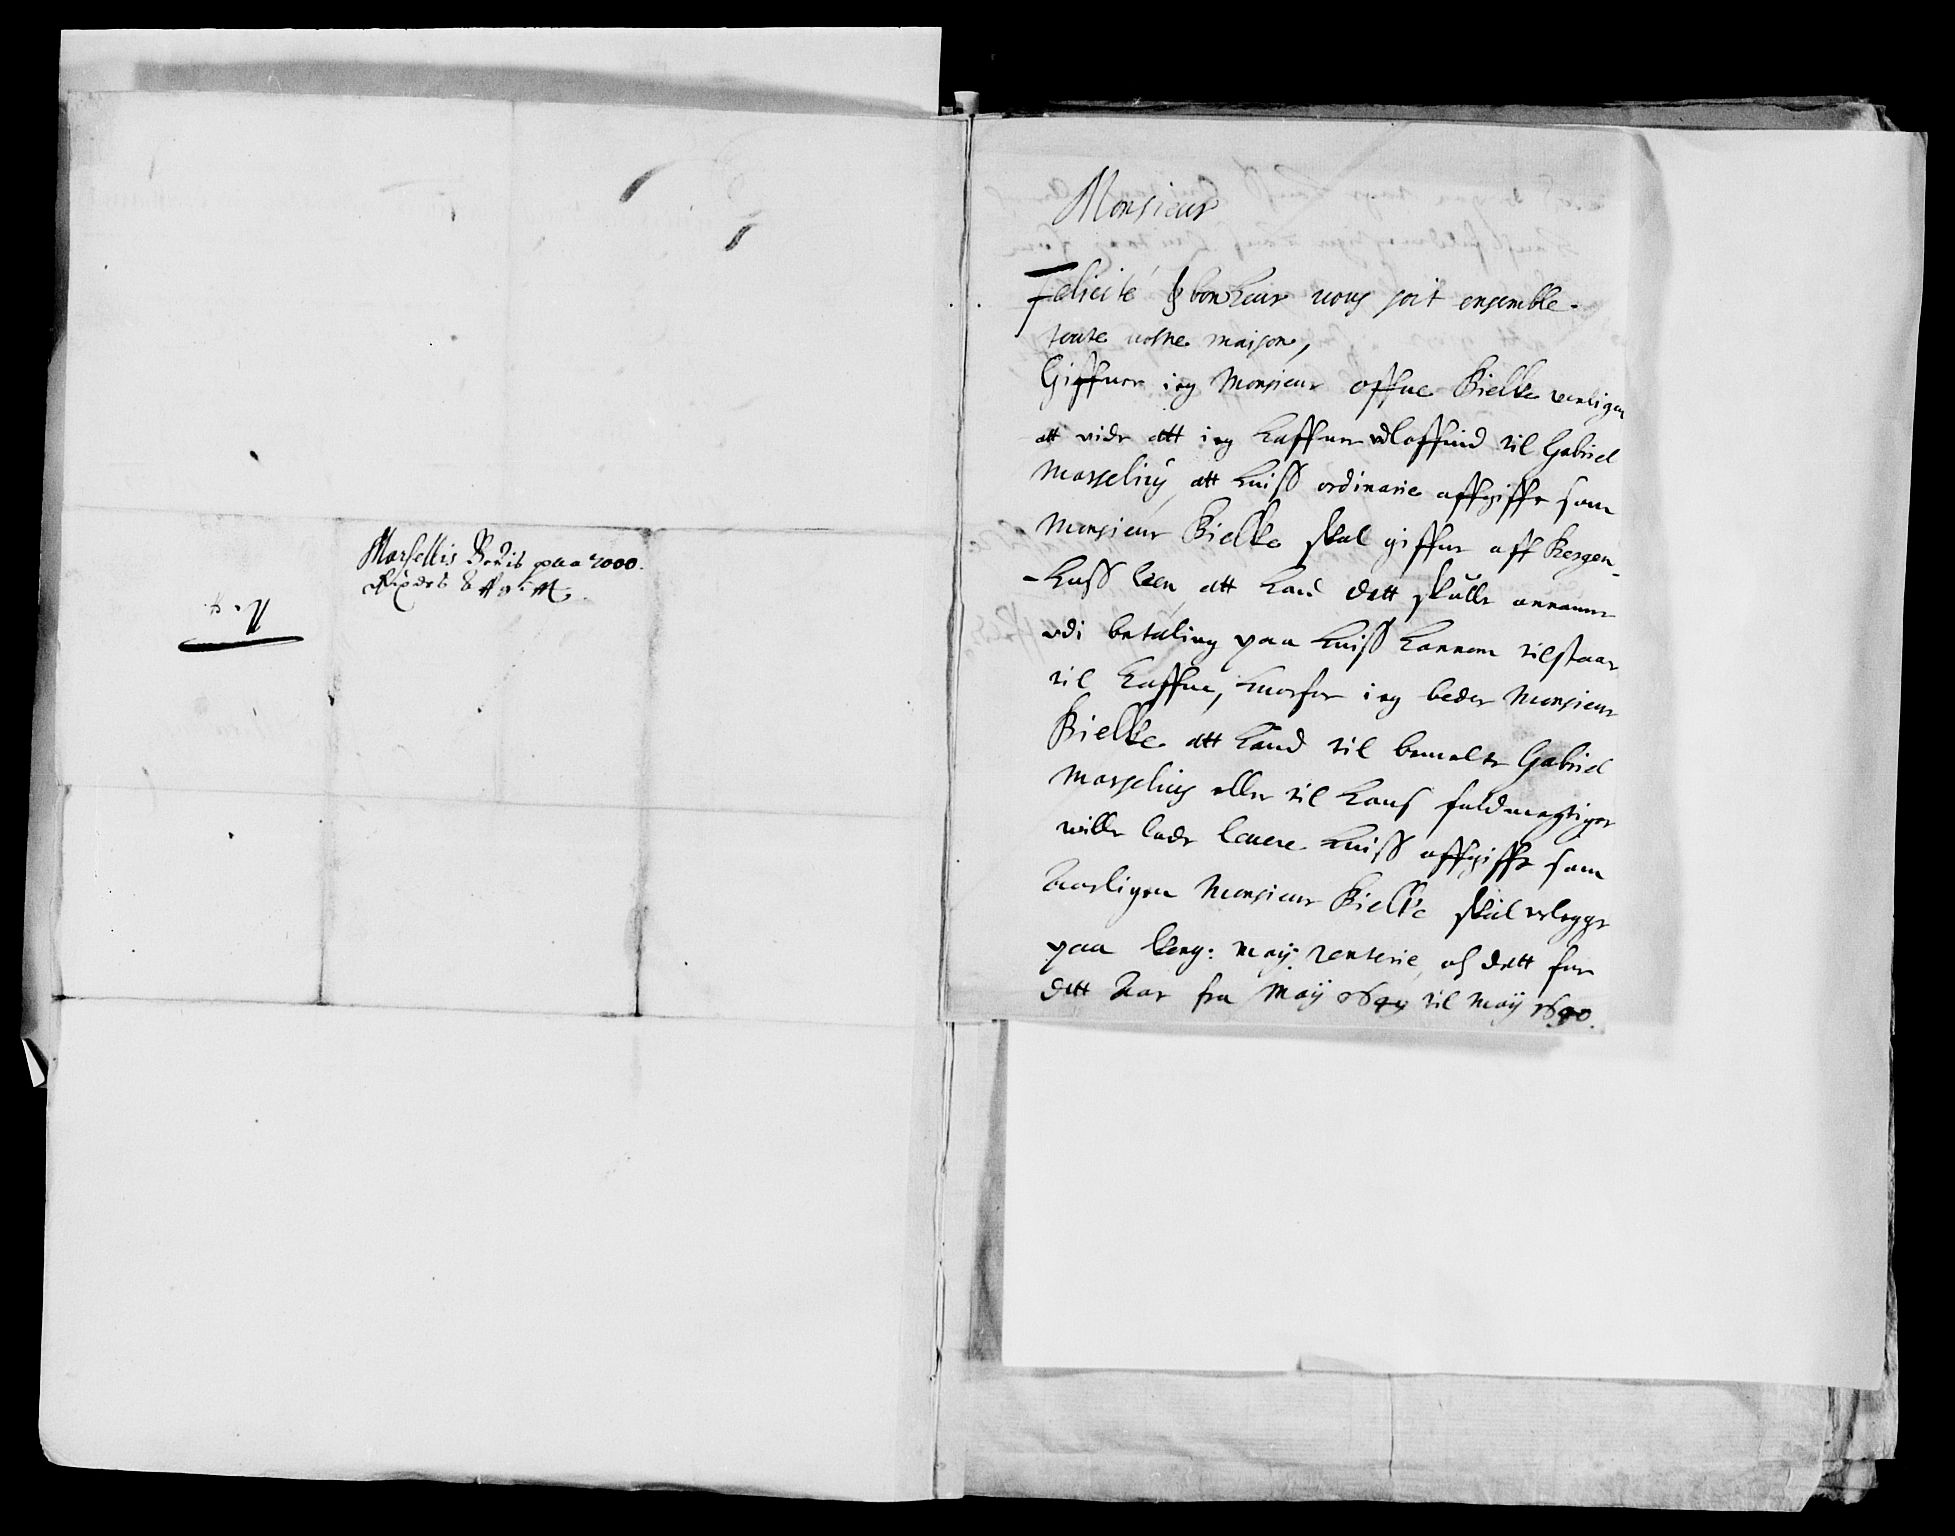 Marsellis Beuis paa 2000.
Rixdr
Monsieur
Felicité & bonheur vous soit ensemble
toute vostre maison,
Giffuer ieg Monsieur Offue Bielke venligen
att vide att ieg haffuer vdloffuid til Gabriel
Marselius, att huiss ordinarie affgifft som
Monsieur Bielke skal giffue aff Bergen-
-huss leen, att hand dett skulle annamme
vdi betaling paa huiss hannem tilstaar
til haffue, huorfor ieg beder Monsieur
Bielke att hand til bemelte Gabriel
Marselius eller til hans fuldmegtiger
wille lade leuere huiss affgifft som
Aarligen Monsieur Bielke skal erlegge
paa Kong: May: Renterie, oc dett for
dett Aar fra Maij til Maij